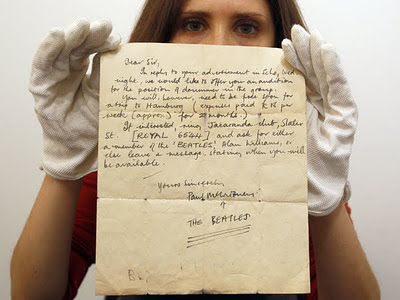 Dear Sir,
In reply to your advertisement in Echo, Wed.
night, we would like to offer you an audition
for the position of drummer in the group.
You will, however, need to be free soon for
a trip to Hamburg (expenses paid £18 per
week (approx.) for 2 months.)
If interested, ring Jacaranda club, Slater
St [ROYAL 6544] and ask for either
a member of the 'BEATLES', Alan Williams, or
else leave a message, stating when you will
be available
Yours Sincerely
Paul McCartney
THE BEATLES